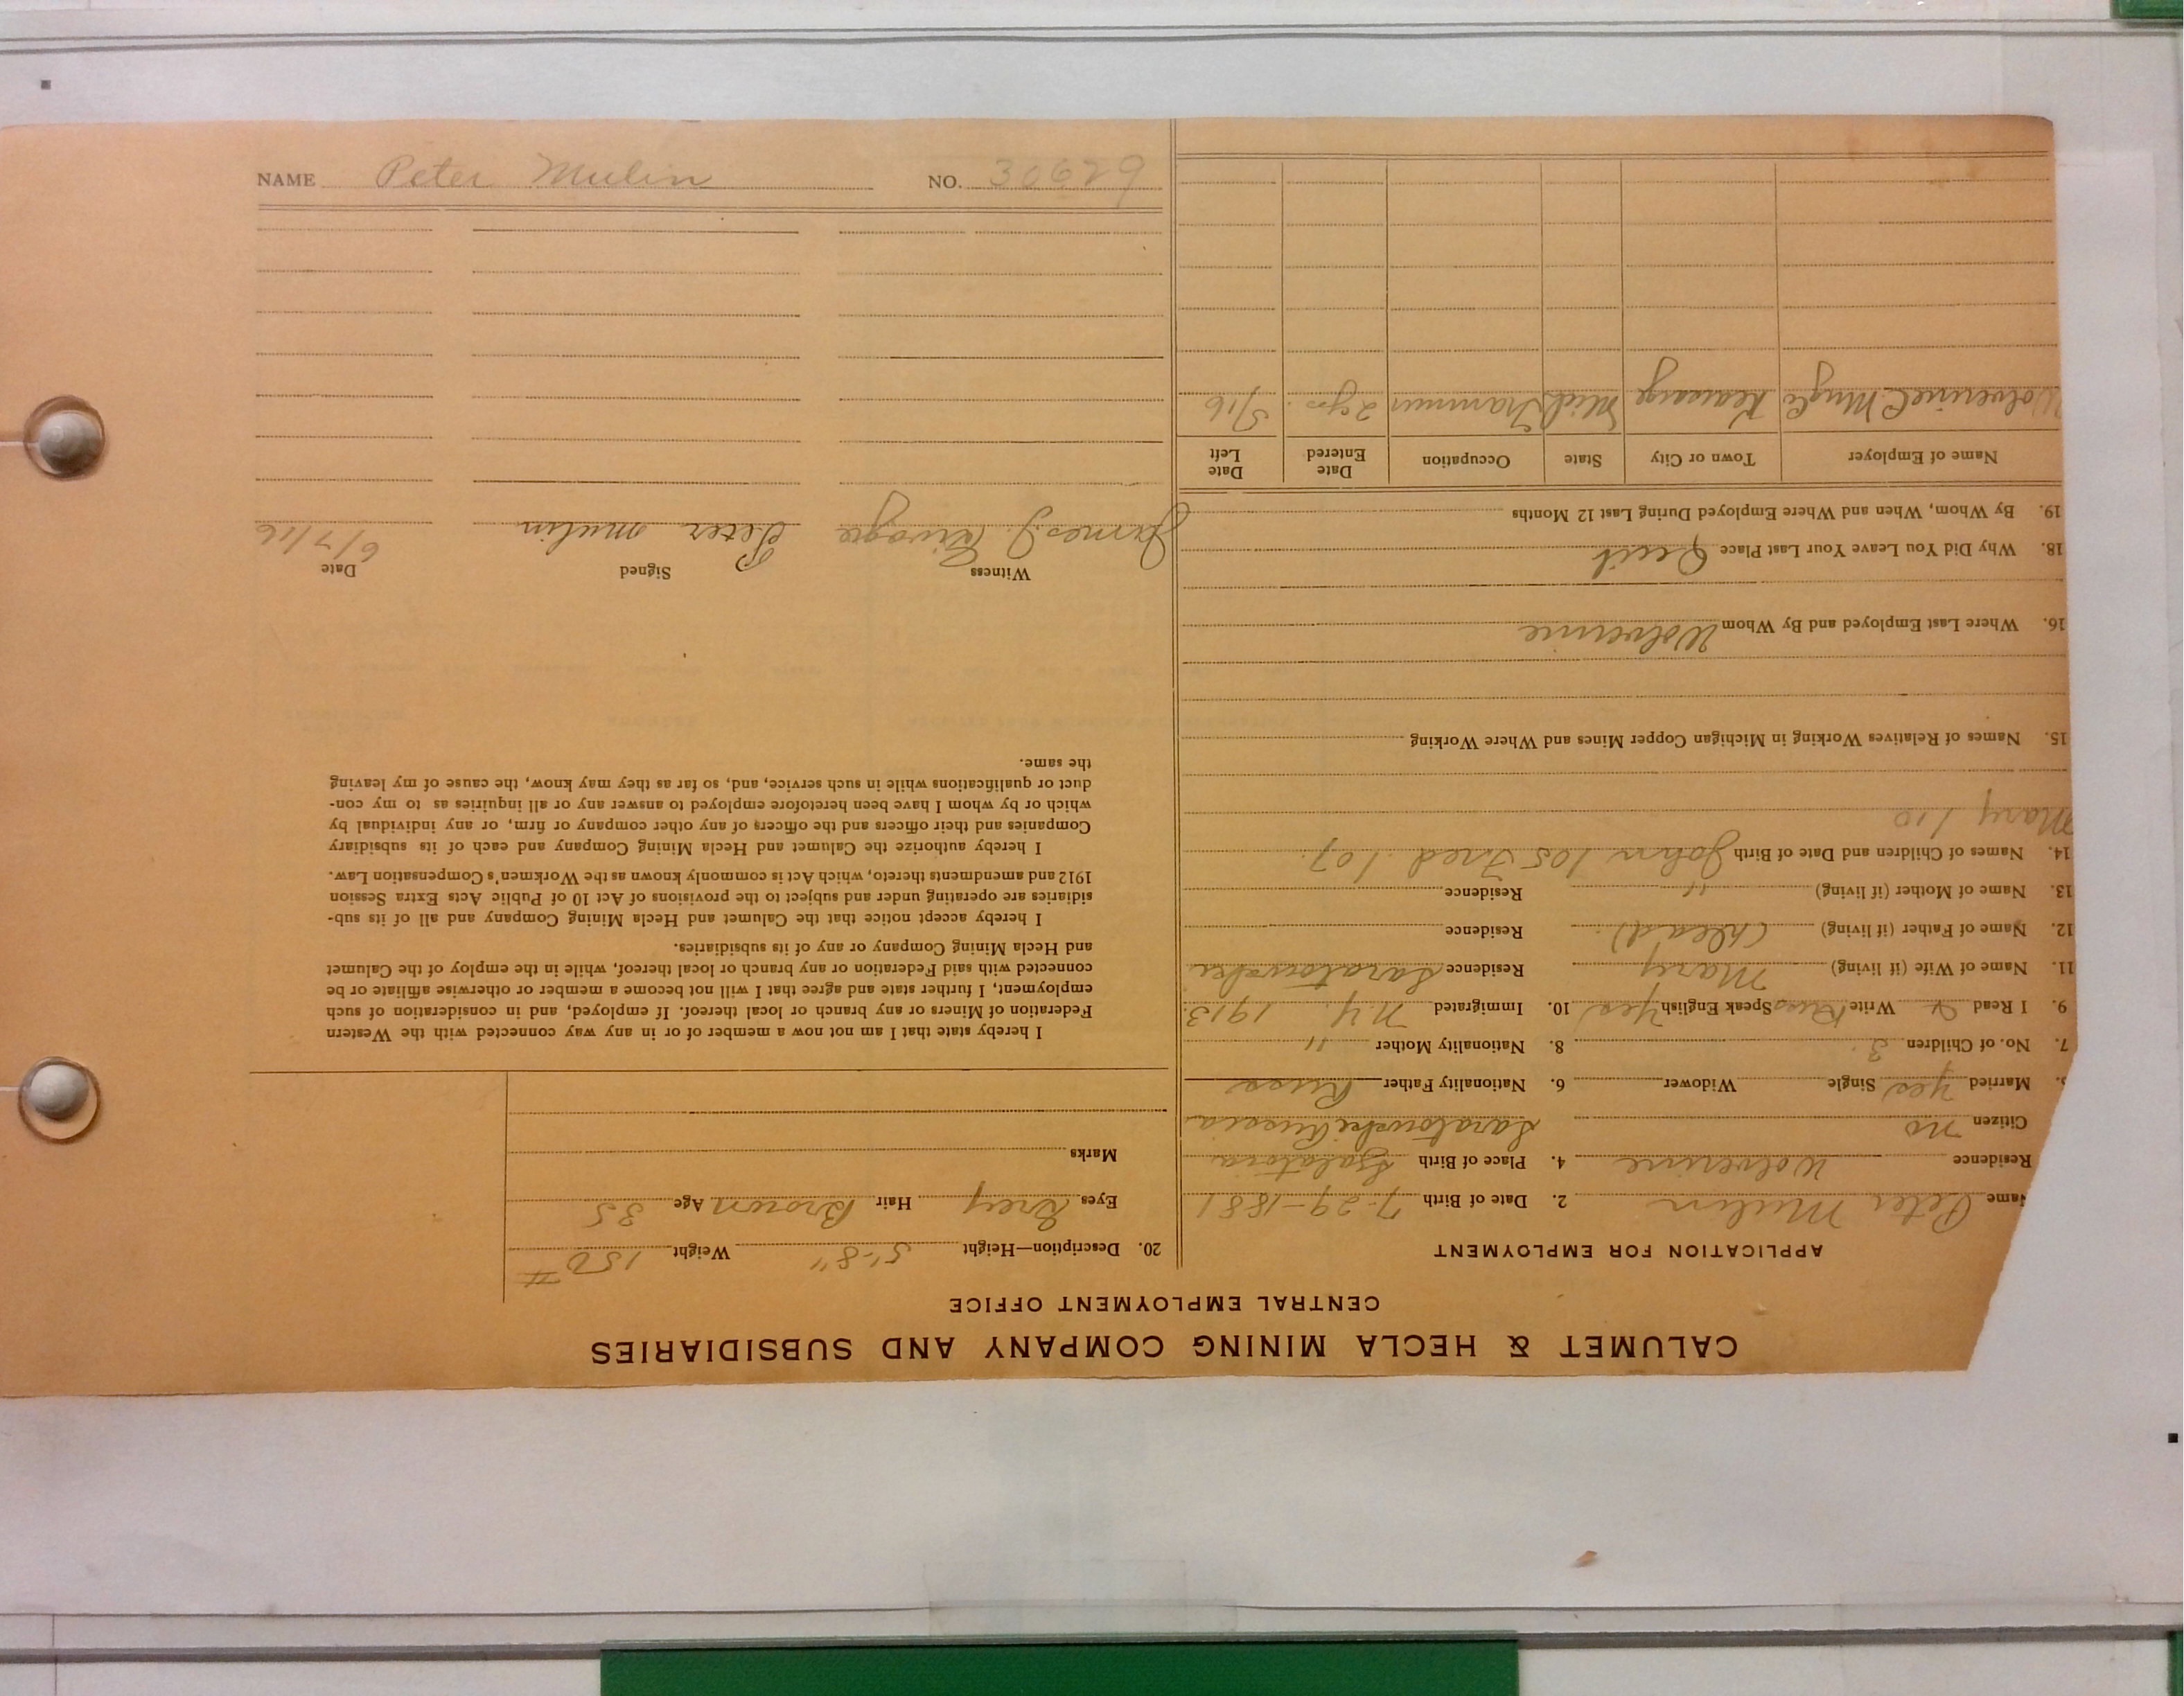 NAME Peter Mulin NO. 30629
CALUMET & HECLA MINING COMPANY AND SUBSIDIARIES
CENTRAL EMPLOYMENT OFFICE
APPLICATION FOR EMPLOYMENT
Name Peter Mulin 2. Date of Birth 7-29-1881
Residence Wolverine 4. Place of Birth
Citizen no Saratowski Russia
Married Yes Single Widower 6. Nationality Father Russ
7. No. of Children 3 8. Nationality Mother "
9. I Read & Write Russ Speak English Yes 10. Immigrated N.Y. 1913
11. Name of Wife (if living) Mary Residence Saratowski
12. Name of Father (if living) (dead) Residence
13. Name of Mother (if living) " Residence
14. Names of Children and Date of Birth John 105 Fred 107
Mary 110
15. Names of Relatives Working in Michigan Copper Mines and Where Working
16. Where Last Employed and By Whom Wolverine
18. Why Did You Leave Your Last Place Quit
19. By Whom, When and Where Employed During Last 12 Months
Name of Employer Town or City State Occupation Date Entered Date Left
Wolverine C Mng Co Kearsarge Mich Trammer 2 yrs. 5/16
20. Description—Height 5'-8" Weight 150 #
Eyes Grey Hair Brown Age 35
Marks
I hereby state that I am not now a member of or in any way connected with the Western
Federation of Miners or any branch or local thereof. If employed, and in consideration of such
employment, I further state and agree that I will not become a member or otherwise affiliate or be
connected with said Federation or any branch or local thereof, while in the employ of the Calumet
and Hecla Mining Company or any of its subsidiaries.
I hereby accept notice that the Calumet and Hecla Mining Company and all of its sub-
sidiaries are operating under and subject to the provisions of Act 10 of Public Acts Extra Session
1912 and amendments thereto, which Act is commonly known as the Workmen's Compensation Law.
I hereby authorize the Calumet and Hecla Mining Company and each of its subsidiary
Companies and their officers and the officers of any other company or firm, or any individual by
which or by whom I have been heretofore employed to answer any or all inquiries as to my con-
duct or qualifications while in such service, and, so far as they may know, the cause of my leaving
the same.
Witness Signed Date
James J. Peter Mulin 6/7/16